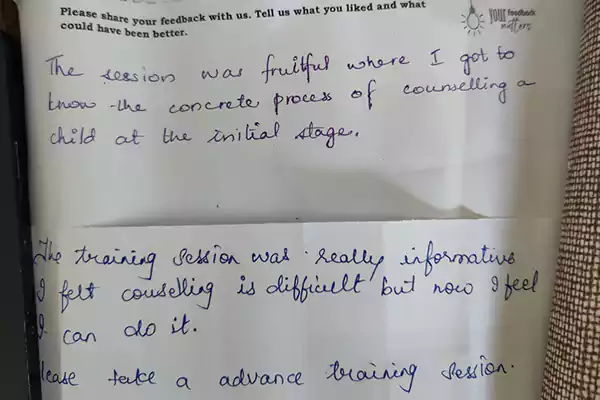 Please share your feedback with us. Tell us what you liked and what
could have been better.
YOUR feedback
matters
The session was fruitful where I got to
know the concrete process of counselling a
child at the initial stage.
The training session was really informative
I felt couselling is difficult but now I feel
I can do it.
lease take a advance training session.